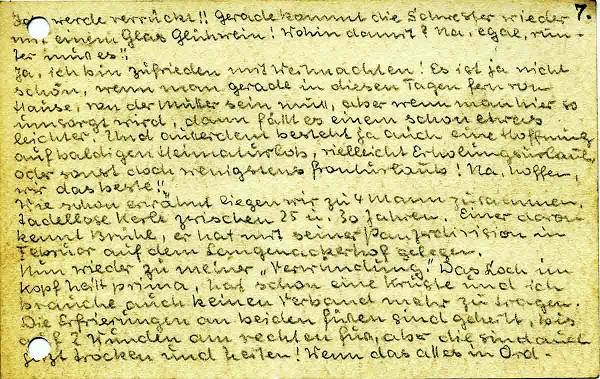 7.
Ich werde verrückt!! Gerade kommt die Schwester wieder
mit einem Glas Glühwein! Wohin damit? Na, egal, run-
ter muß es!!
Ja, ich bin zufrieden mit Weihnachten! Es ist ja nicht
schön, wenn man gerade in diesen Tagen fern von
Hause, von der Mutter sein muß, aber wenn man hier so
umsorgt wird, dann fällt es einem schon etwas
leichter. Und außerdem besteht ja auch eine Hoffnung
auf baldigen Heimaturlaub, vielleicht Erholungsurlaub,
oder sonst doch wenigstens Fronturlaub! Na, hoffen,
wir das beste!!
Wie schon erwähnt liegen wir zu 4 Mann zusammen.
Tadellose Kerle zwischen 25 u. 30 Jahren. Einer davon
kennt Brühl, er hat mit seiner Panzerdivision im
Februar auf dem Langenackerhof gelegen.
Nun wieder zu meiner „Verwundung". Das Loch im
Kopf heilt prima, hat schon eine Kruste und ich
brauche auch keinen Verband mehr zu tragen.
Die Erfrierungen an beiden Füßen sind geheilt, bis
auf 2 Wunden am rechten Fuß, aber die sind auch
jetzt trocken und heilen! Wenn das alles in Ord-